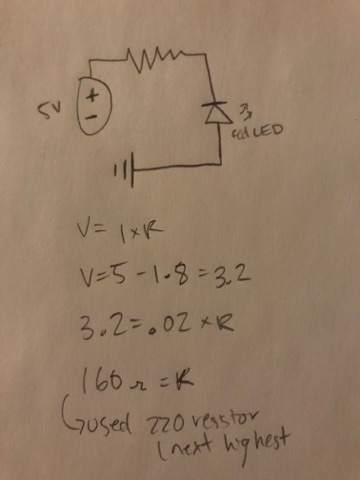 +
5V
-
red LED
V= I×R
V=5-1.8=3.2
3.2=.02×R
160Ω=R
↳used 220 resstor
(next highest